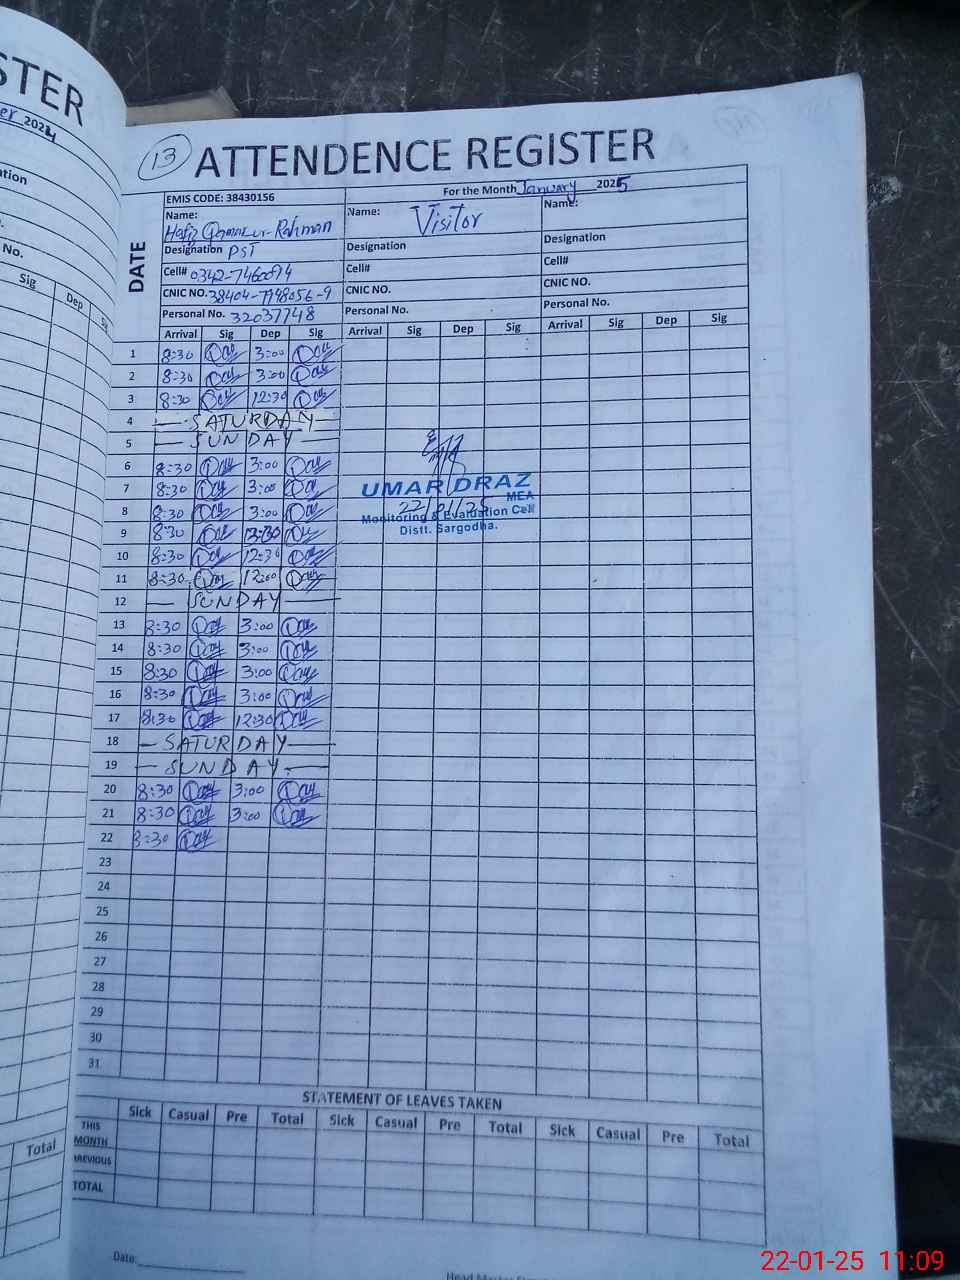 STER
2024
13 ATTENDENCE REGISTER
EMIS CODE: 38430156
For the Month January 2025
DATE
Name:
Hafiz Rahman
Designation PST
Cell# 0342-7460094
CNIC NO. 38404-7998056-9
Personal No. 32037748
Name: Visitor
Designation
Cell#
CNIC NO.
Personal No.
Name:
Designation
Cell#
CNIC NO.
Personal No.
No.
Sig Dep
Arrival Sig Dep Sig Arrival Sig Dep Sig Arrival Sig Dep Sig
1 8:30 3:00
2 8:30 3:00
3 8:30 12:30
4 — SATURDAY —
5 — SUNDAY —
6 8:30 3:00
7 8:30 3:00
8 8:30 3:00
9 8:30
10 8:30 12:30
11 8:30 12:00
12 — SUNDAY —
13 8:30 3:00
14 8:30 3:00
15 8:30 3:00
16 8:30 3:00
17 8:30 12:30
18 — SATURDAY —
19 — SUNDAY —
20 8:30 3:00
21 8:30 3:00
22 8:30
23
24
25
26
27
28
29
30
31
UMAR DRAZ
MEA
22/01/25
Monitoring & Evaluation Cell
Distt. Sargodha.
STATEMENT OF LEAVES TAKEN
Sick Casual Pre Total Sick Casual Pre Total Sick Casual Pre Total
THIS
MONTH
PREVIOUS
TOTAL
Total
Date:
Head Master
22-01-25 11:09